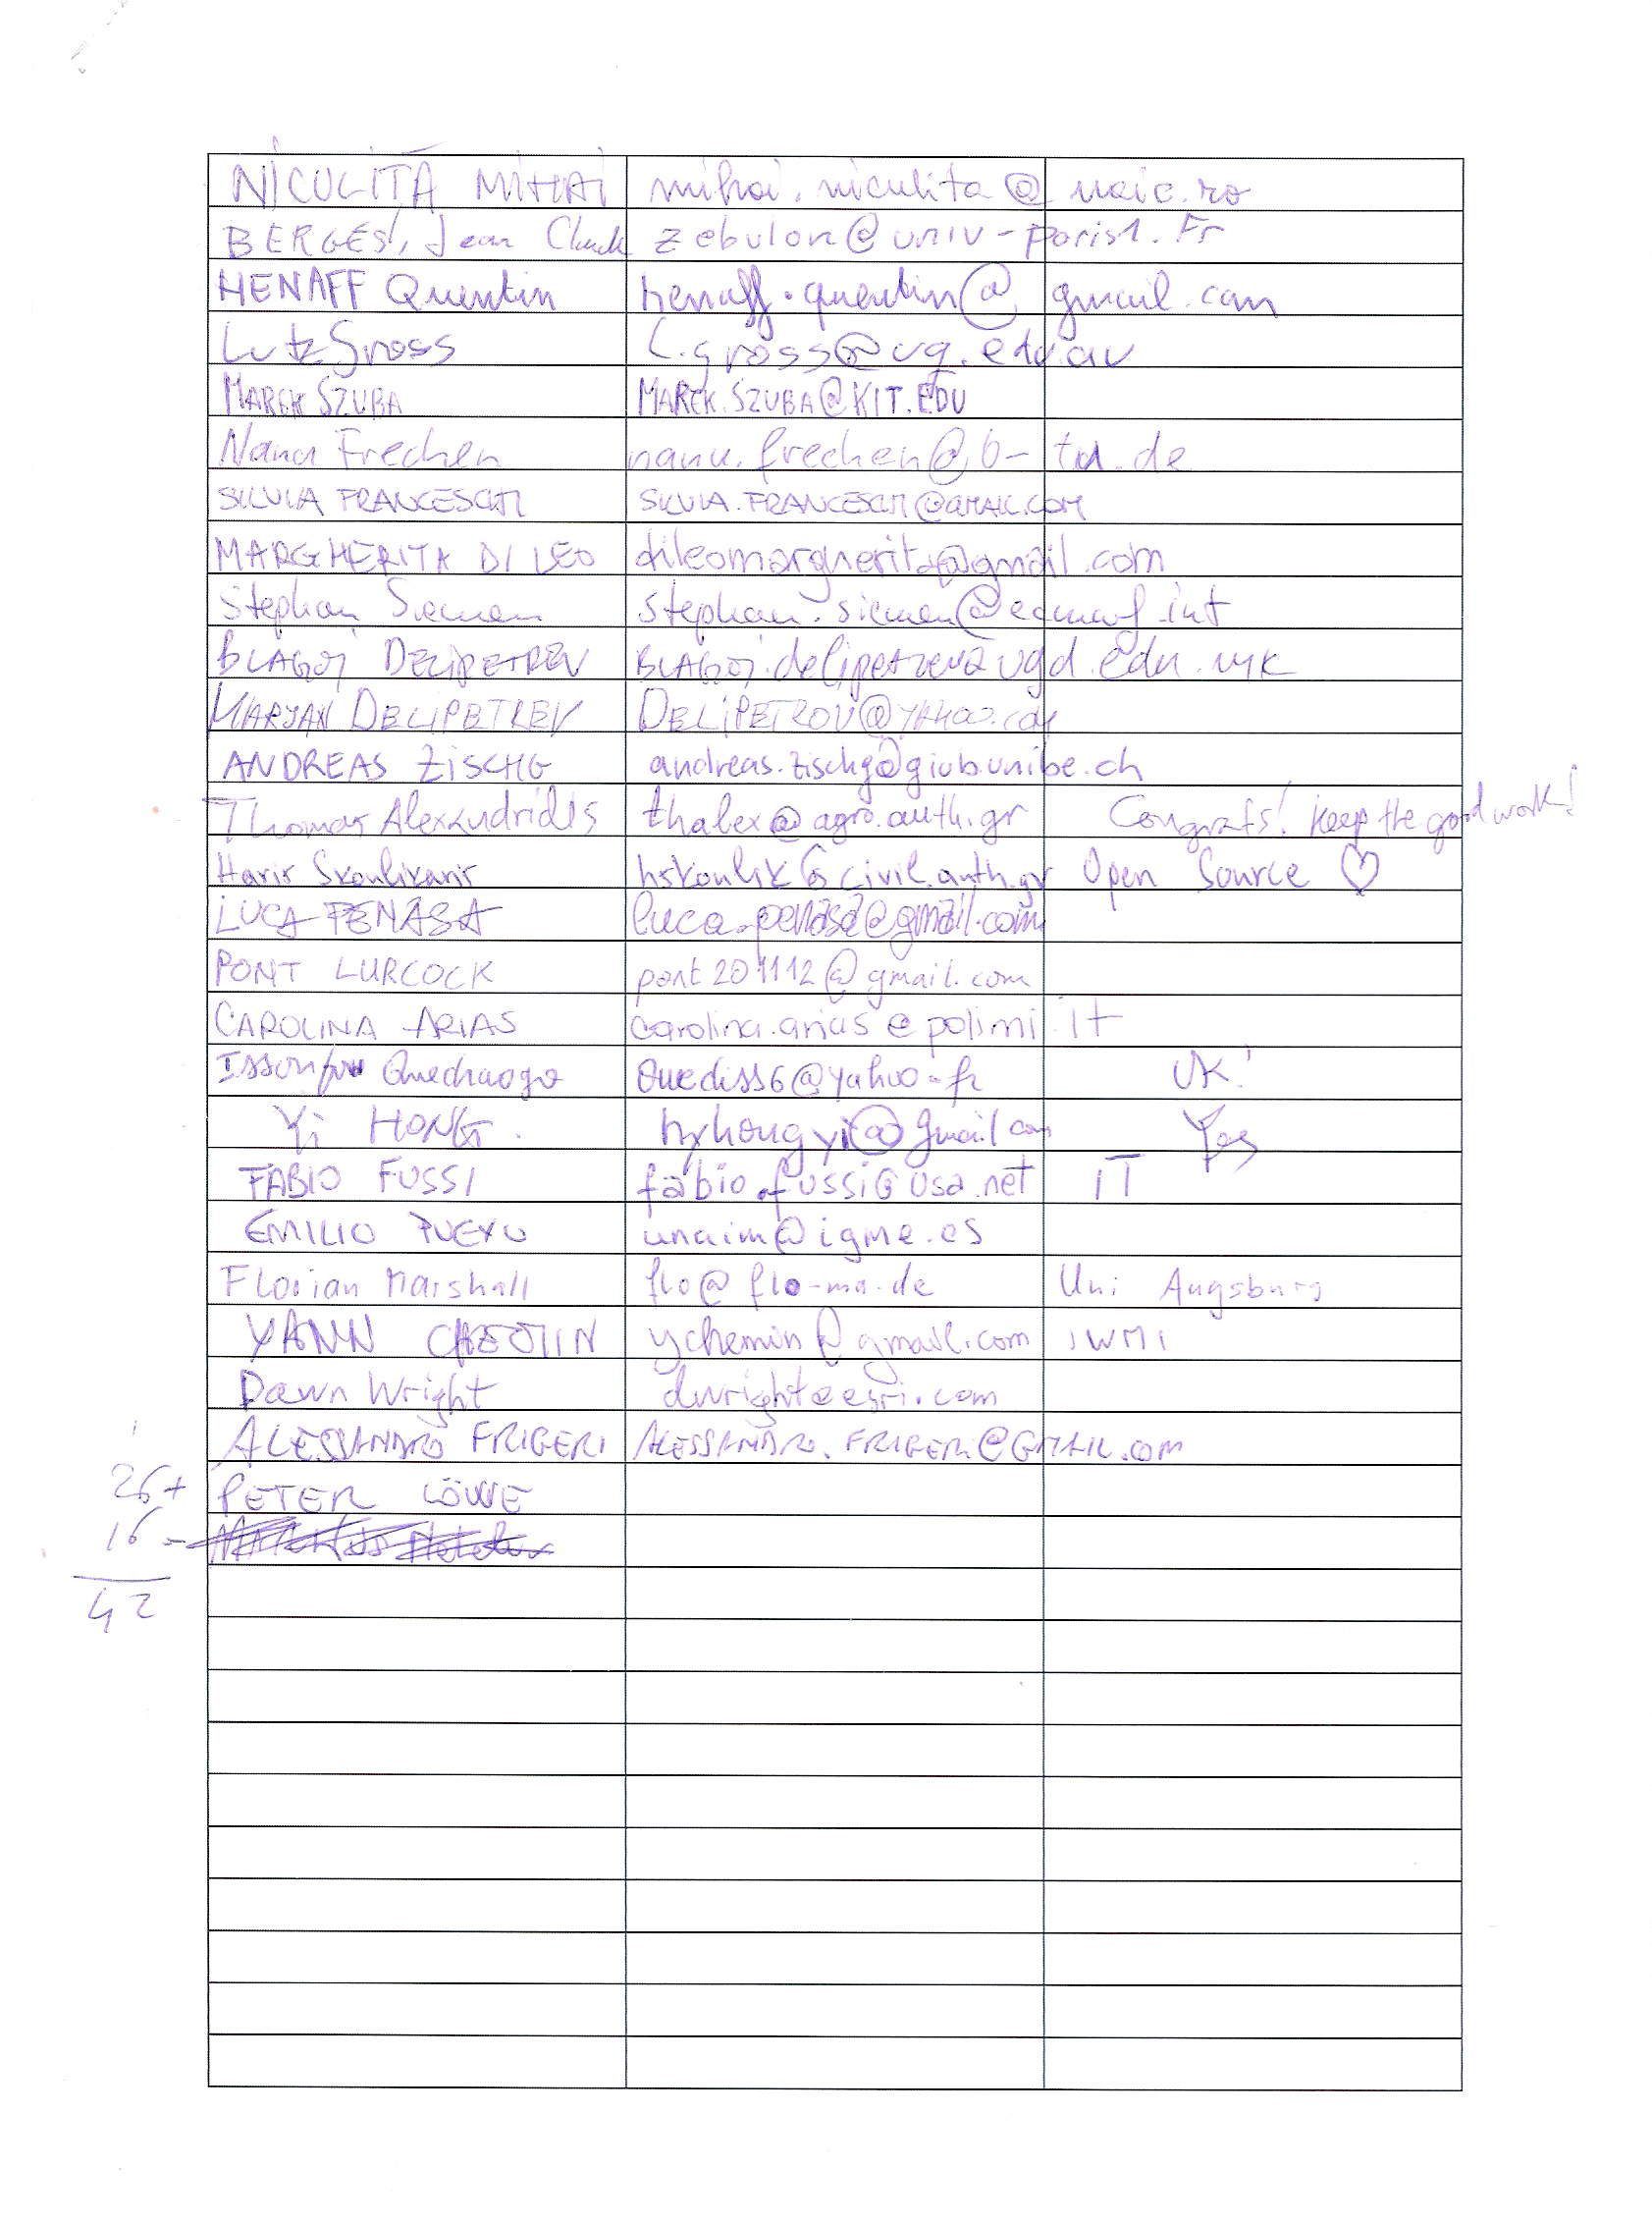 NICULIȚĂ MIHAI mihai.niculita@uaic.ro
BERGES, Jean Claude zebulon@univ-paris1.Fr
HENAFF Quentin henaff.quentin@gmail.com
Lutz Gross l.gross@uq.edu.au
MAREK SZUBA MAREK.SZUBA@KIT.EDU
Nanu Frechen nanu.frechen@b-tu.de
SILVIA FRANCESCHI SILVIA.FRANCESCHI@GMAIL.COM
MARGHERITA DI LEO dileomargherita@gmail.com
Stephan Siemen stephan.siemen@ecmwf.int
BLAGOJ DELIPETREV BLAGOJ.delipetrev@ugd.edu.mk
MARJAN DELIPETREV DELIPETROV@YAHOO.COM
ANDREAS ZISCHG andreas.zischg@giub.unibe.ch
Thomas Alexandridis thalex@agro.auth.gr Congrats! Keep the good work!
Haris Skoulikaris hskoulik@civil.auth.gr Open Source ♡
LUCA PENASA luca.penasa@gmail.com
PONT LURCOCK pont201112@gmail.com
CAROLINA ARIAS carolina.arias@polimi.it
Ouedraogo Ouediss6@yahoo.fr OK!
Yi HONG. hyhongyi@gmail.com Yes
FABIO FUSSI fabio.fussi@usa.net IT
EMILIO PUEYO unaim@igme.es
Florian Marshall flo@flo-ma.de Uni Augsburg
YANN CHEMIN ychemin@gmail.com IWMI
Dawn Wright dwright@esri.com
ALESSANDRO FRIGERI ALESSANDRO.FRIGERI@GMAIL.COM
26+ PETER LÖWE
16-
42